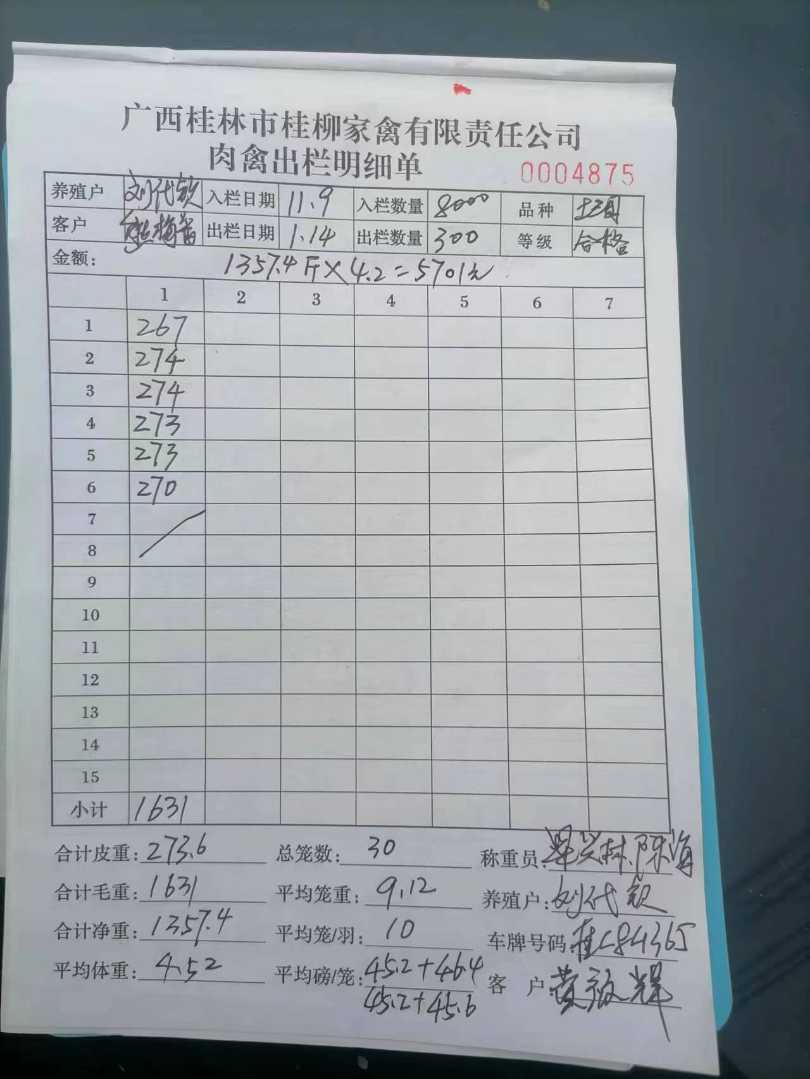 广西桂林市桂柳家禽有限责任公司
肉禽出栏明细单 0004875
养殖户 刘代钦 入栏日期 11.9 入栏数量 8000 品种
客户 出栏日期 1.14 出栏数量 300 等级 合格
金额: 1357.4斤×4.2=5701元
1 2 3 4 5 6 7
1 267
2 274
3 274
4 273
5 273
6 270
7
8
9
10
11
12
13
14
15
小计 1631
合计皮重: 273.6 总笼数: 30 称重员:
合计毛重: 1631 平均笼重: 9.12 养殖户: 刘代钦
合计净重: 1357.4 平均笼/羽: 10 车牌号码: 桂C84365
平均体重: 4.52 平均磅/笼: 45.2+46.4 客户
45.2+45.6